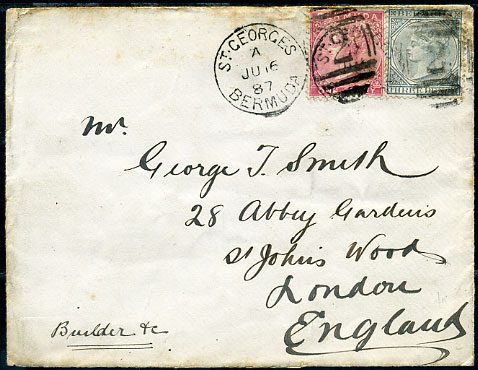 ST. GEORGES
A
JU 16
87
BERMUDA
Mr.
George T. Smith
28 Abbey Gardens
St Johns Wood
London
England
Builder &c